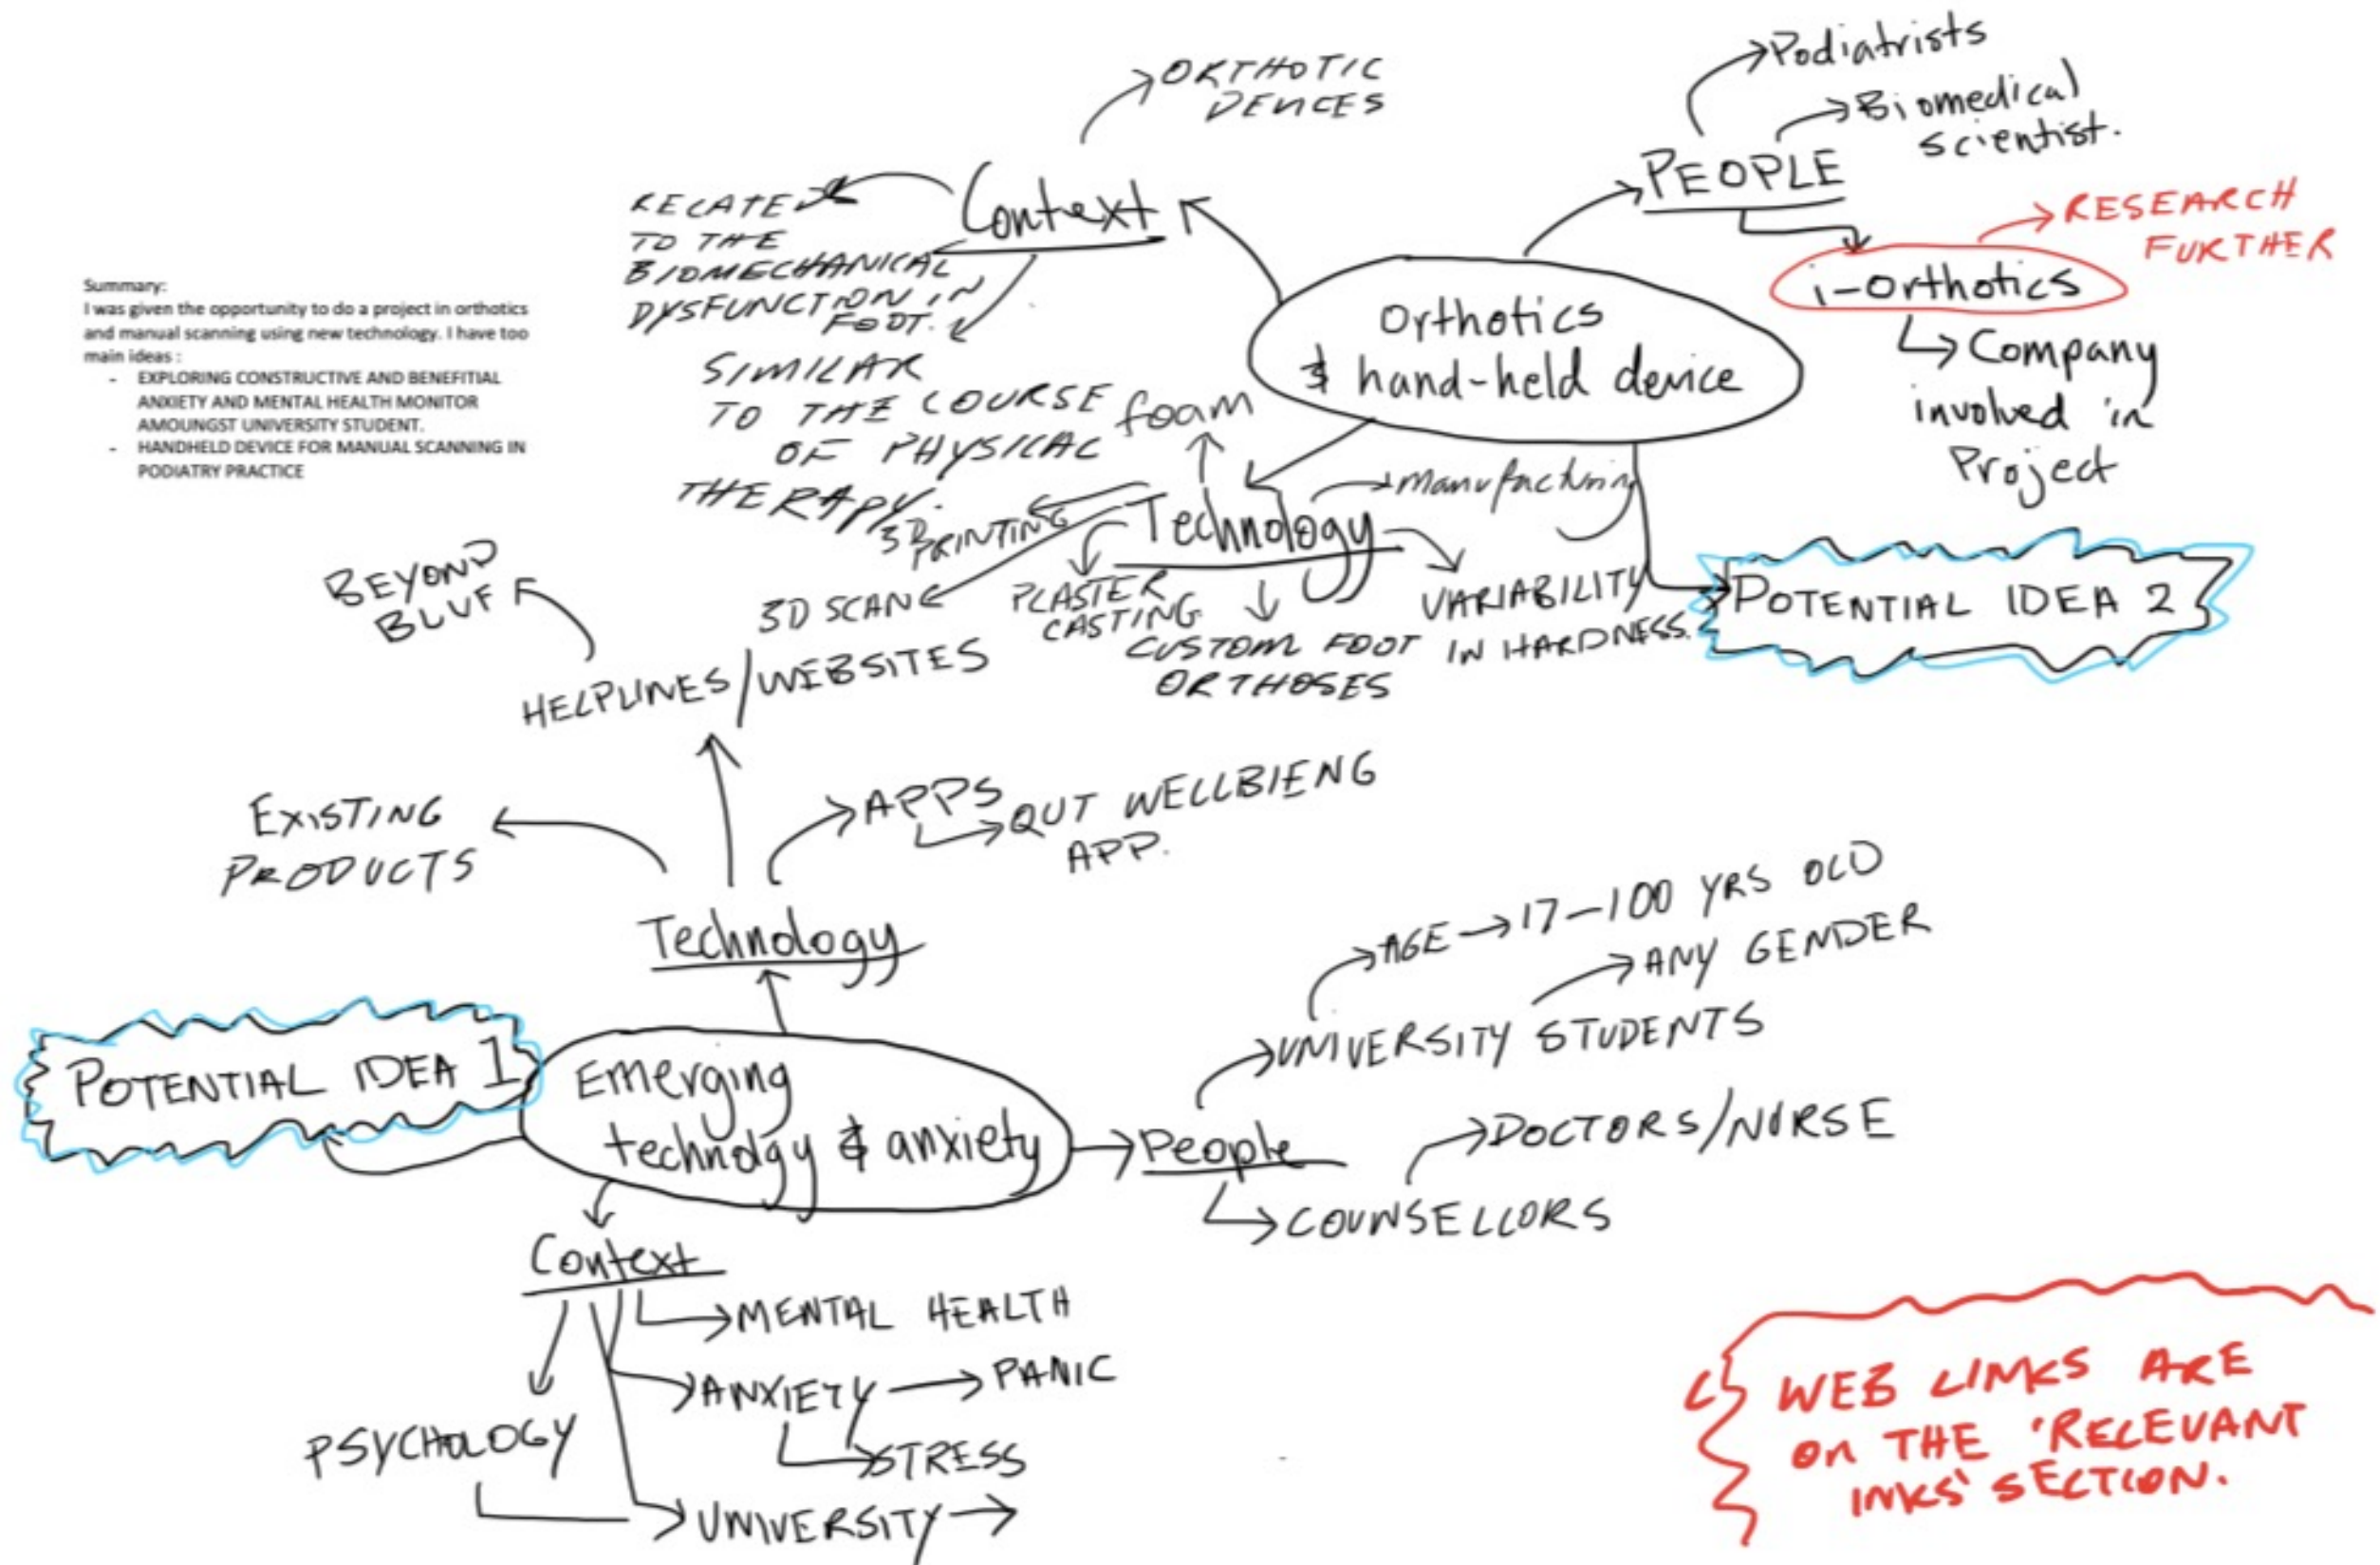 Summary:
I was given the opportunity to do a project in orthotics
and manual scanning using new technology. I have too
main ideas :
- EXPLORING CONSTRUCTIVE AND BENEFITIAL
ANXIETY AND MENTAL HEALTH MONITOR
AMOUNGST UNIVERSITY STUDENT.
- HANDHELD DEVICE FOR MANUAL SCANNING IN
PODIATRY PRACTICE
Orthotics
& hand-held device
Context
ORTHOTIC
DEVICES
RELATE
TO THE
BIOMECHANICAL
DYSFUNCTION IN
FOOT.
SIMILAR
TO THE COURSE
OF PHYSICAL
THERAPY.
PEOPLE
Podiatrists
Biomedical
scientist.
i-orthotics
RESEARCH
FURTHER
Company
involved in
Project
Technology
foam
manufacturing
3D
PRINTING
3D SCAN
PLASTER
CASTING
CUSTOM FOOT
ORTHOSES
VARIABILITY
IN HARDNESS.
POTENTIAL IDEA 2
BEYOND
BLUF
HELPLINES/WEBSITES
EXISTING
PRODUCTS
APPS
QUT WELLBIENG
APP.
Technology
POTENTIAL IDEA 1
Emerging
technolgy & anxiety
People
UNIVERSITY STUDENTS
AGE → 17-100 YRS OLD
ANY GENDER
DOCTORS/NURSE
COUNSELLORS
Context
MENTAL HEALTH
ANXIETY → PANIC
STRESS
PSYCHOLOGY
UNIVERSITY →
WEB LINKS ARE
ON THE 'RELEVANT
INKS' SECTION.